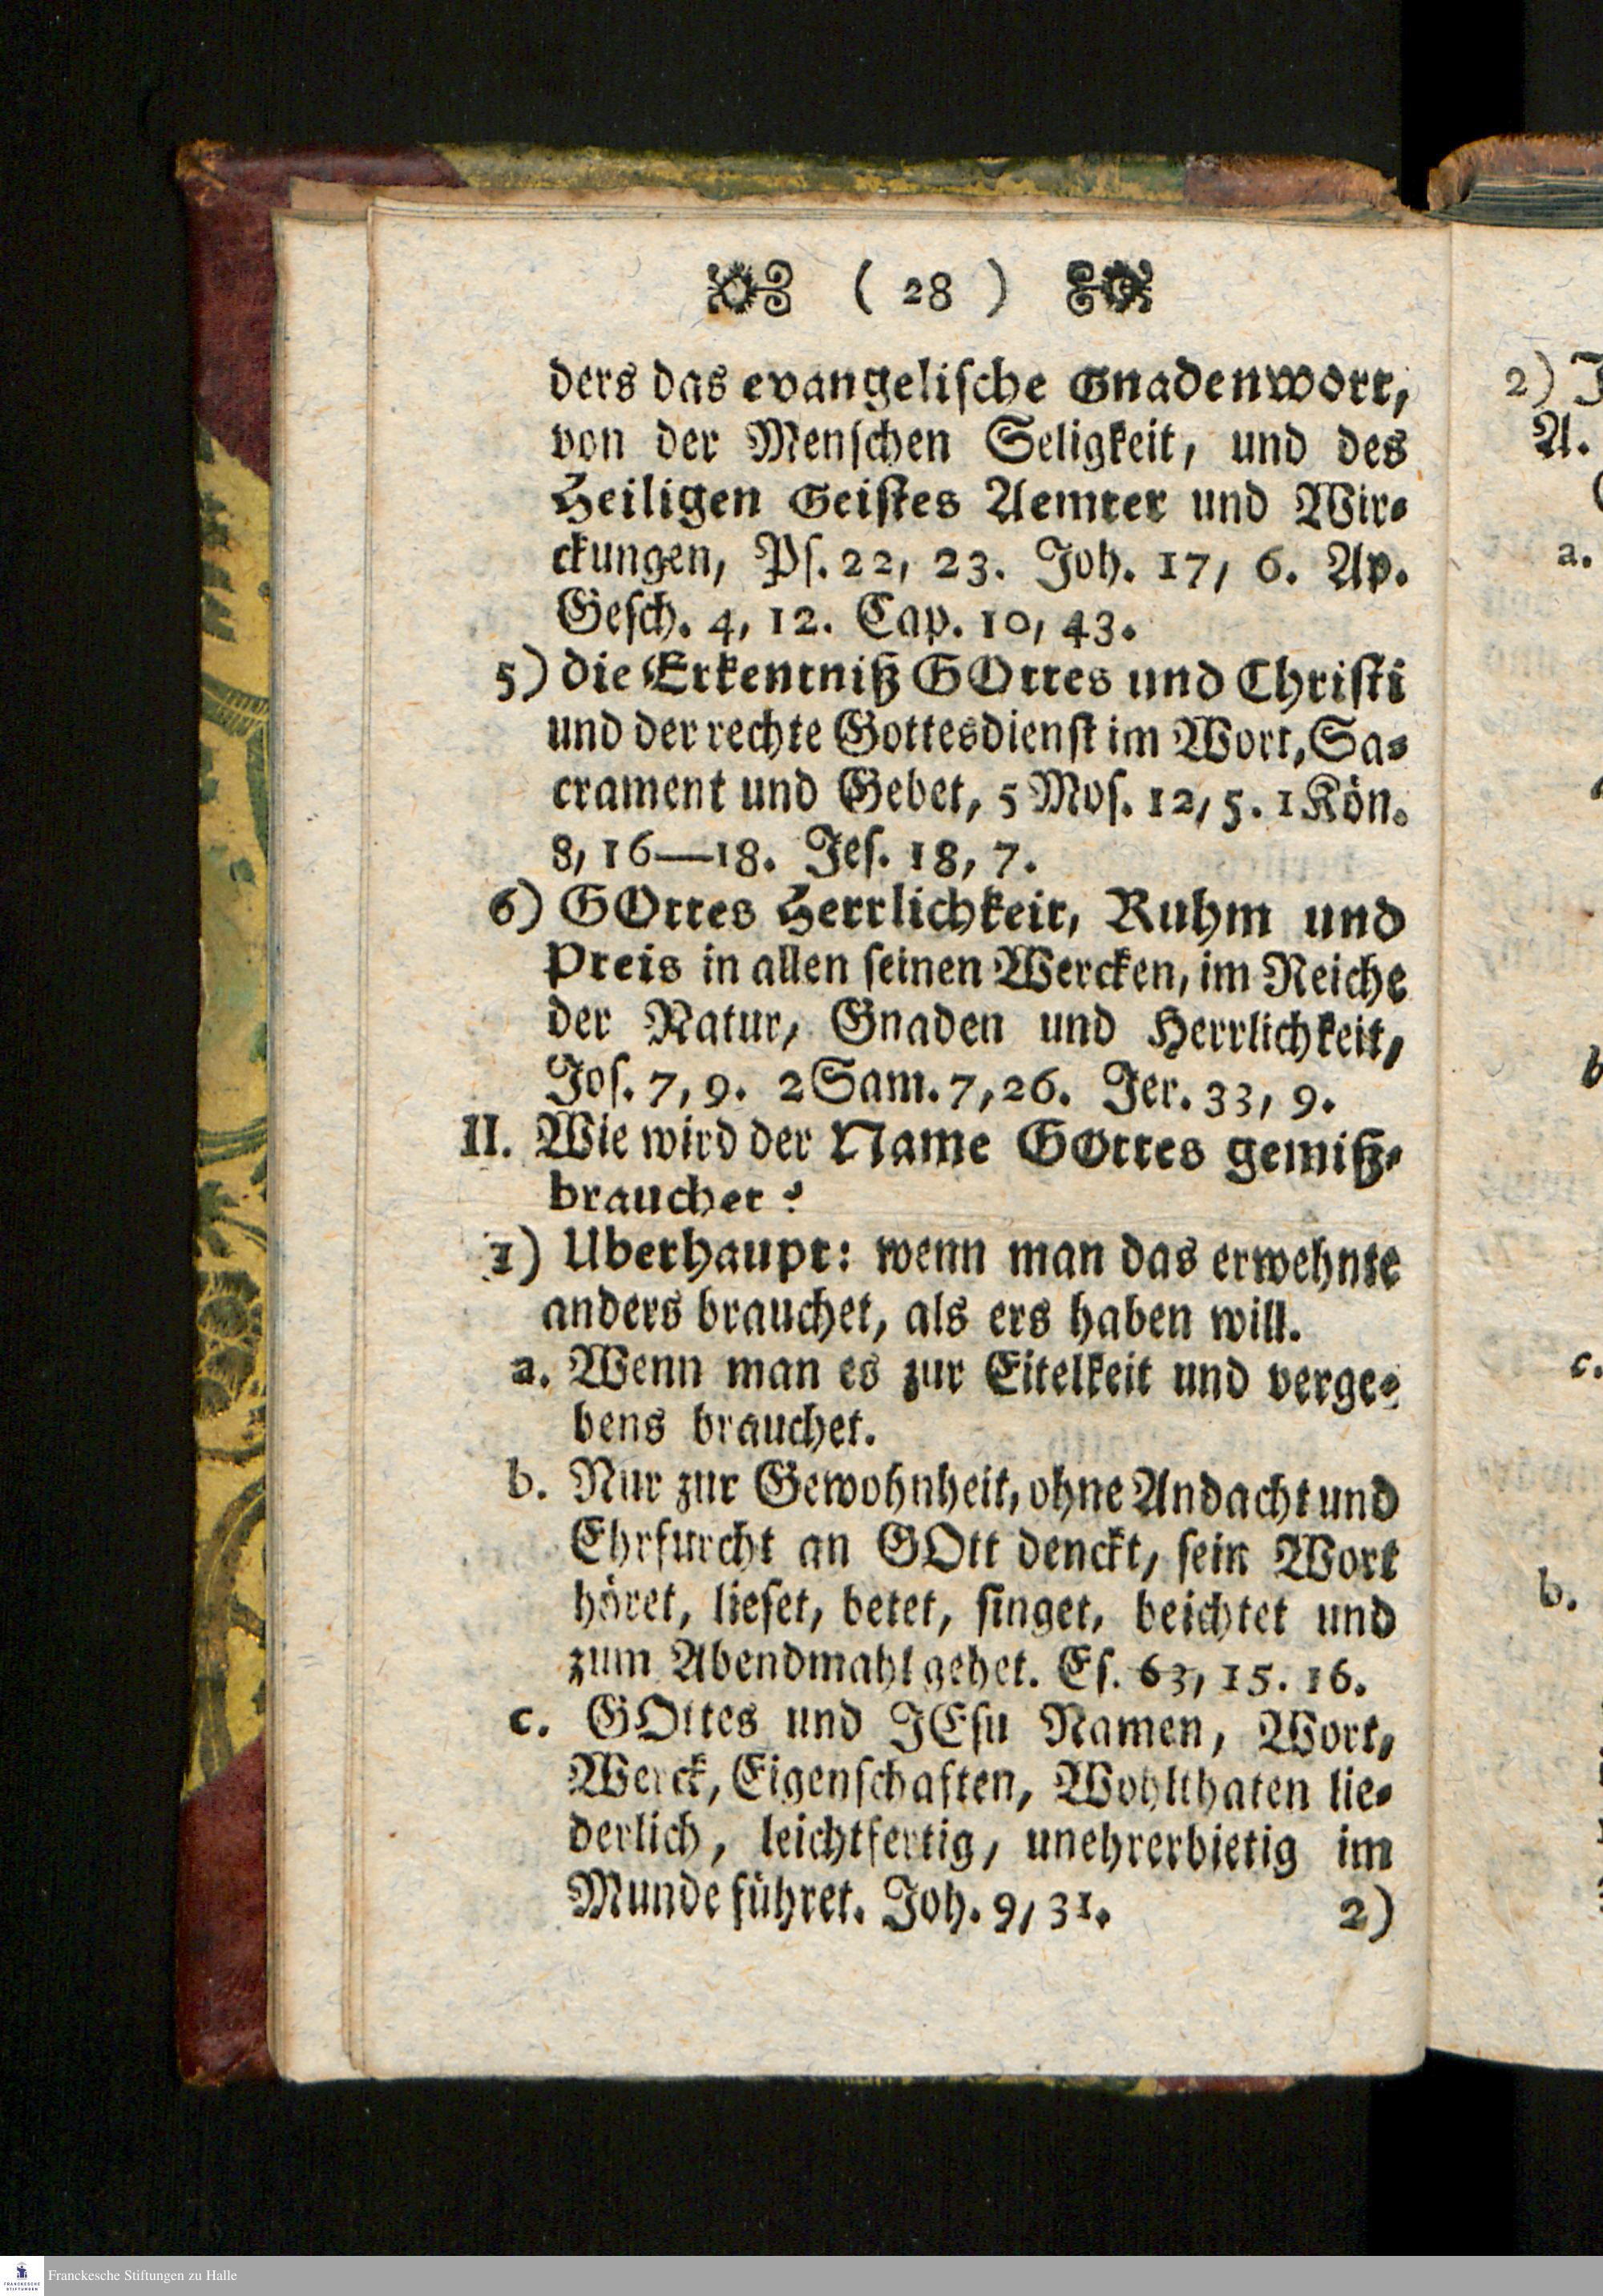 ( 28 )
ders das evangelische Gnadenwort,
von der Menschen Seligkeit, und des
Heiligen Geistes Aemter und Wir-
ckungen, Ps. 22, 23. Joh. 17, 6. Ap.
Gesch. 4, 12. Cap. 10, 43.
5) die Erkentniß GOttes und Christi
und der rechte Gottesdienst im Wort, Sa-
crament und Gebet, 5 Mos. 12, 5. 1 Kön.
8, 16—18. Jes. 18, 7.
6) GOttes Herrlichkeit, Ruhm und
Preis in allen seinen Wercken, im Reiche
der Natur, Gnaden und Herrlichkeit,
Jos. 7, 9. 2 Sam. 7, 26. Jer. 33, 9.
II. Wie wird der Name GOttes gemiß-
brauchet?
1) Uberhaupt: wenn man das erwehnte
anders brauchet, als ers haben will.
a. Wenn man es zur Eitelkeit und verge-
bens brauchet.
b. Nur zur Gewohnheit, ohne Andacht und
Ehrfurcht an GOtt denckt, sein Wort
höret, lieset, betet, singet, beichtet und
zum Abendmahl gehet. Es. 63, 15. 16.
c. GOttes und JEsu Namen, Wort,
Werck, Eigenschaften, Wohlthaten lie-
derlich, leichtfertig, unehrerbietig im
Munde führet. Joh. 9, 31.
2)
2)
A.
a.
b
c.
b.
Franckesche Stiftungen zu Halle